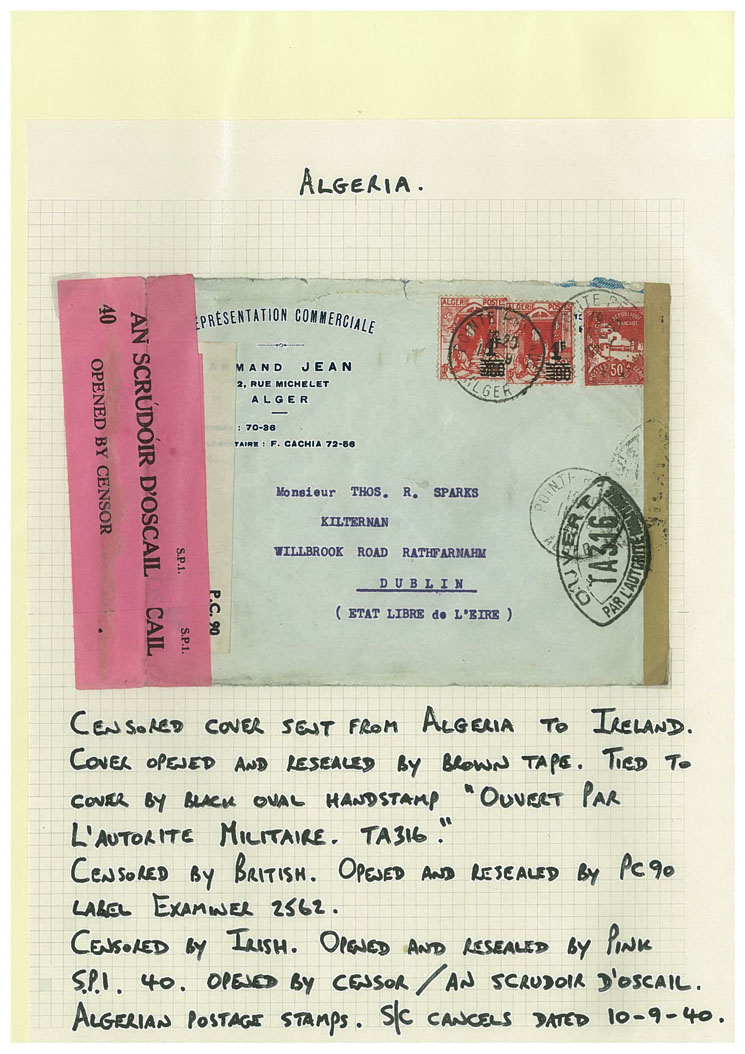 ALGERIA.
40
OPENED BY CENSOR
AN SCRÚDÓIR D'OSCAIL
CAIL
S.P.1.
S.P.1.
P.C. 90
EPRÉSENTATION COMMERCIALE
MAND JEAN
2, RUE MICHELET
ALGER
: 70-36
TAIRE : F. CACHIA 72-56
ALGERIE POSTES
1F
ALGERIE POSTES
1F
50c
ALGER
Monsieur THOS. R. SPARKS
KILTERNAN
WILLBROOK ROAD RATHFARNAHM
DUBLIN
( ETAT LIBRE de L'EIRE )
POINTE
OUVERT
TA316
PAR L'AUTORITE MILITAIRE
CENSORED COVER SENT FROM ALGERIA TO IRELAND.
COVER OPENED AND RESEALED BY BROWN TAPE. TIED TO
COVER BY BLACK OVAL HANDSTAMP "OUVERT PAR
L'AUTORITE MILITAIRE. TA316."
CENSORED BY BRITISH. OPENED AND RESEALED BY PC90
LABEL EXAMINER 2562.
CENSORED BY IRISH. OPENED AND RESEALED BY PINK
S.P.I. 40. OPENED BY CENSOR/AN SCRUDOIR D'OSCAIL.
ALGERIAN POSTAGE STAMPS. S/C CANCELS DATED 10-9-40.